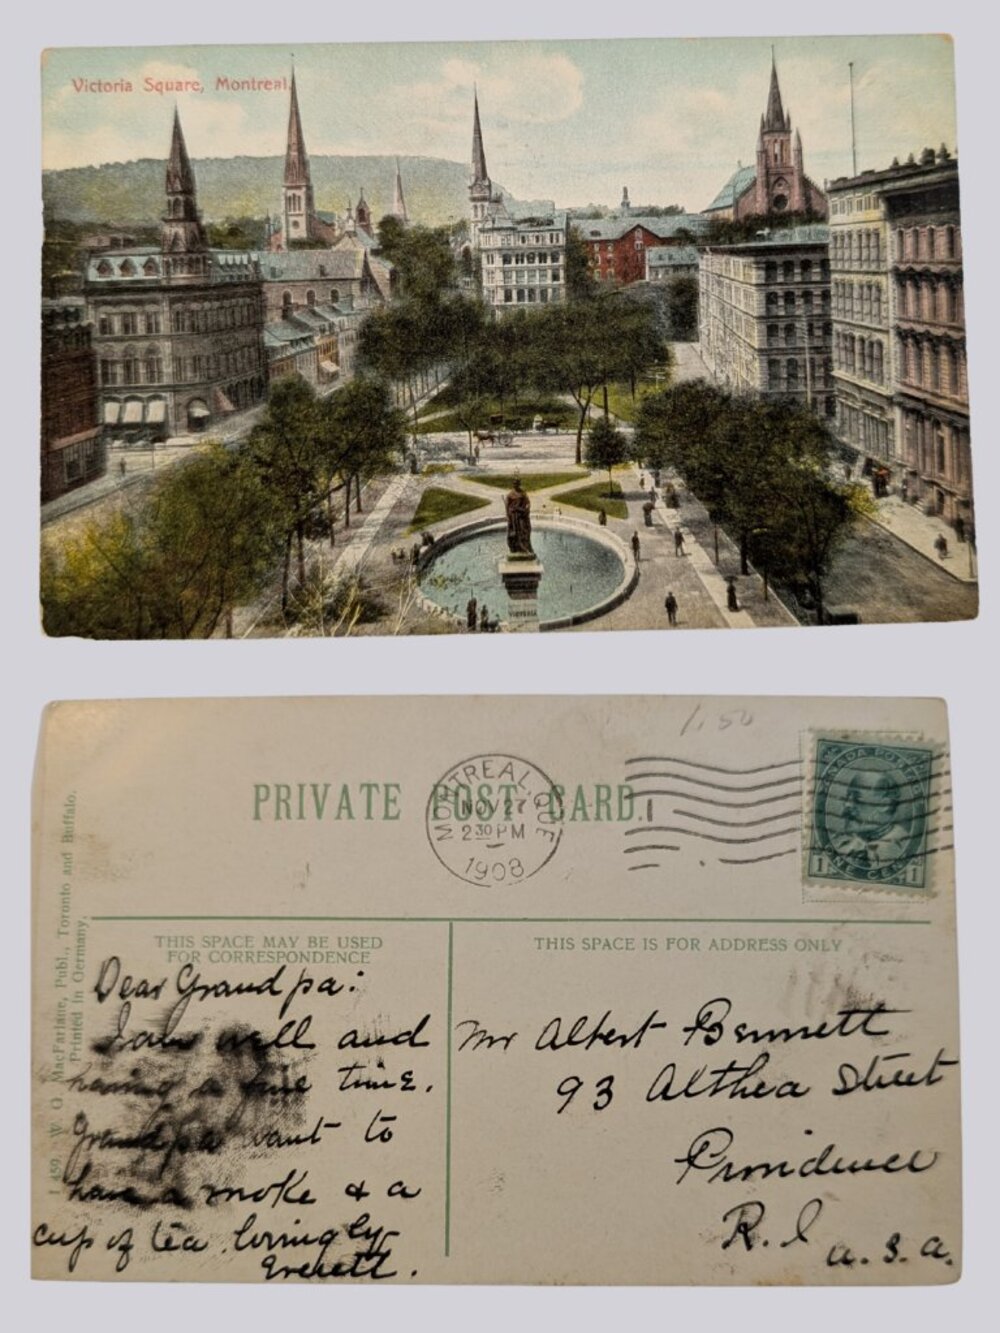 Victoria Square, Montreal.
VICTORIA
1.50
PRIVATE POST CARD.
MONTREAL, QUE
NOV 27
2 30 PM
1908
CANADA POSTAGE
1 ONE CENT 1
THIS SPACE MAY BE USED
FOR CORRESPONDENCE
THIS SPACE IS FOR ADDRESS ONLY
Dear Grandpa:
I am well and
having a fine time.
Grandpa want to
have a smoke & a
cup of tea. lovingly
Everett.
Mr Albert Bennett
93 Althea Street
Providence
R. I
U. S. A.
W. O. MacFarlane, Publ., Toronto and Buffalo.
Printed in Germany.